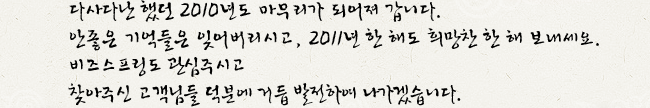 다사다난 했던 2010년도 마무리가 되어져 갑니다.
안좋은 기억들은 잊어버리시고, 2011년 한 해도 희망찬 한 해 보내세요.
비즈스프링도 관심주시고
찾아주신 고객님들 덕분에 거듭 발전하여 나가겠습니다.